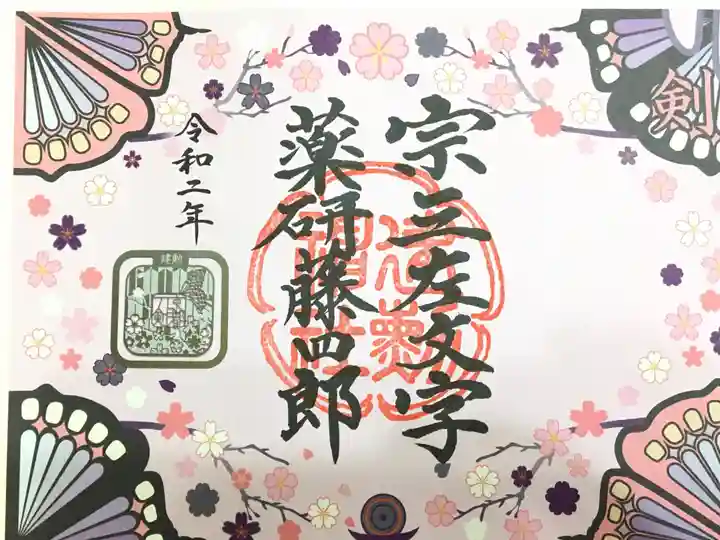 宗三左文字
薬研藤四郎
令和二年
剣
建勲